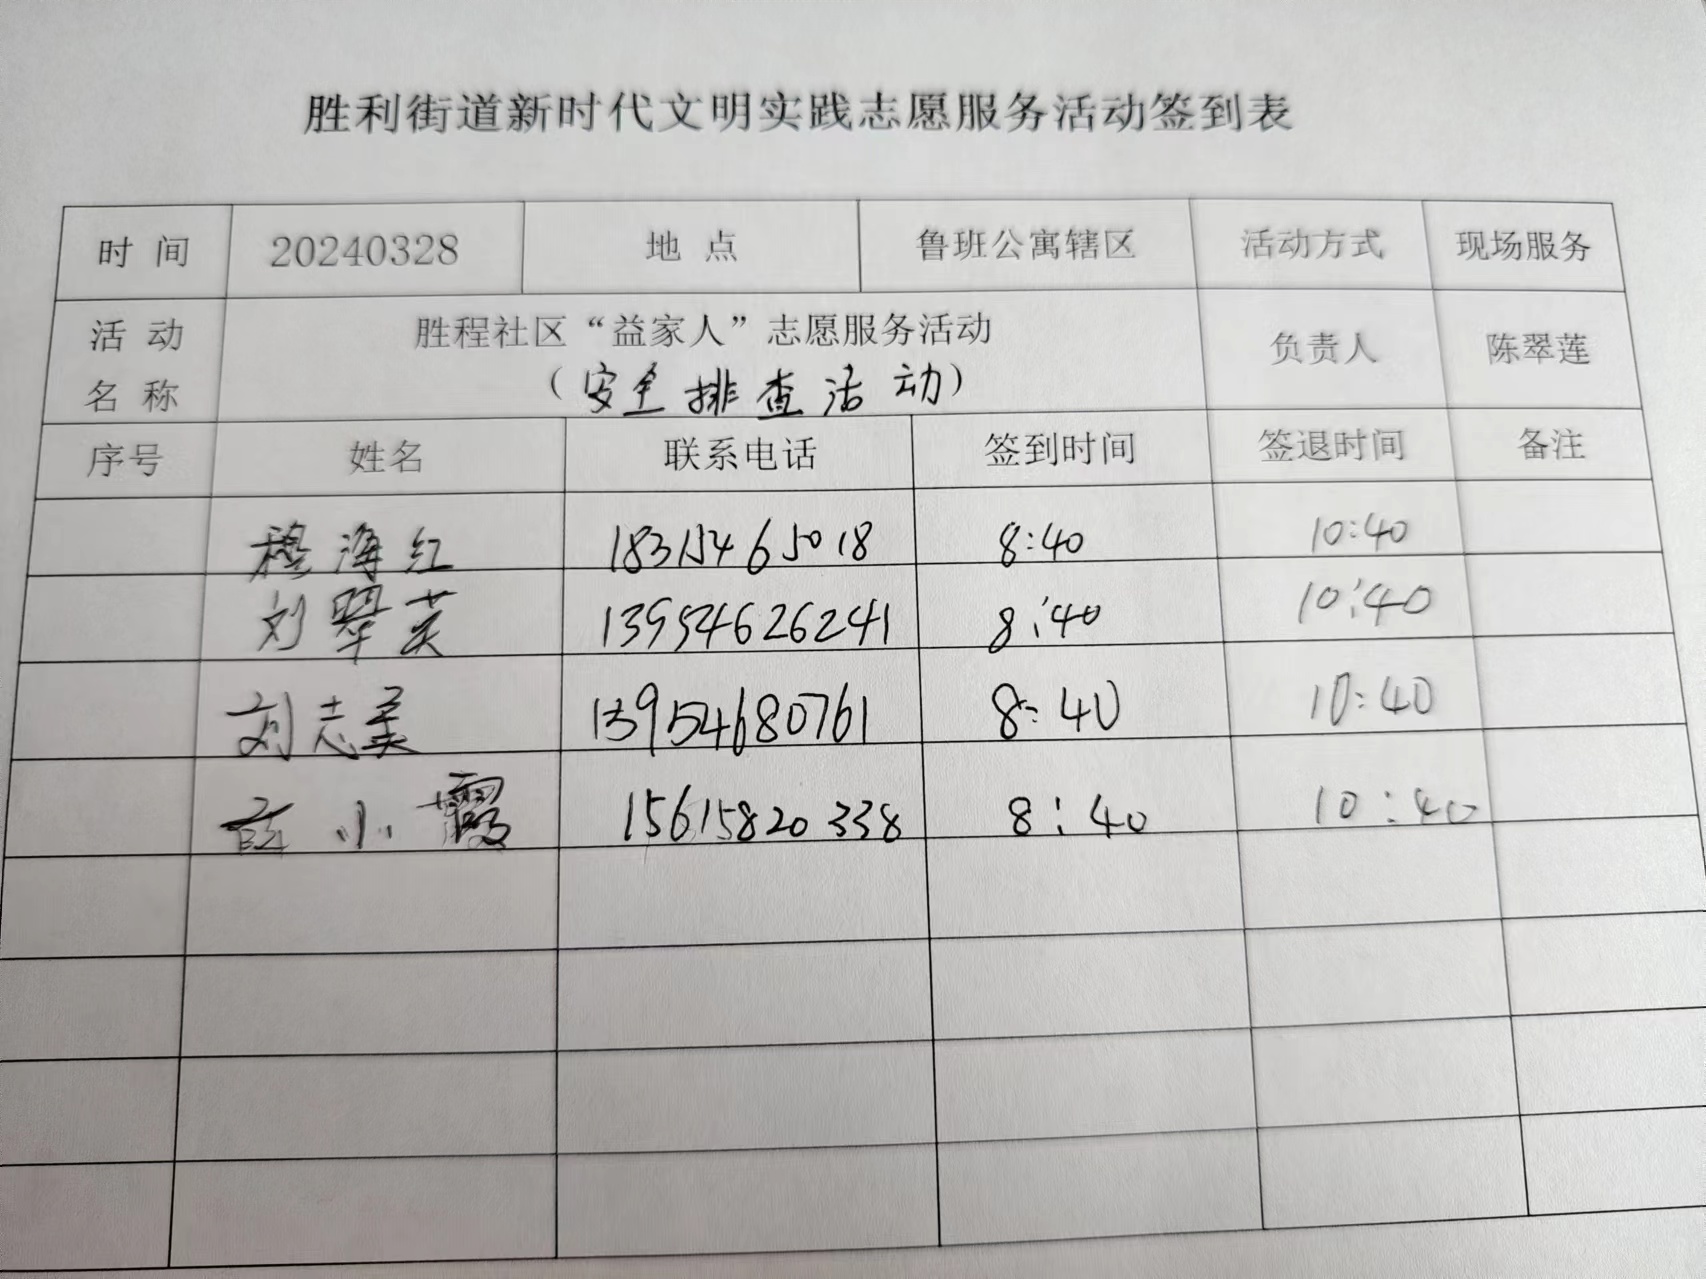 胜利街道新时代文明实践志愿服务活动签到表
时 间 20240328 地 点 鲁班公寓辖区 活动方式 现场服务
活 动 名 称 胜程社区“益家人”志愿服务活动 负责人 陈翠莲
（安全排查活动）
序号 姓名 联系电话 签到时间 签退时间 备注
穆海红 18315465018 8:40 10:40
刘翠英 13954626241 8:40 10:40
刘志美 13954680761 8:40 10:40
薛小霞 15615820338 8:40 10:40